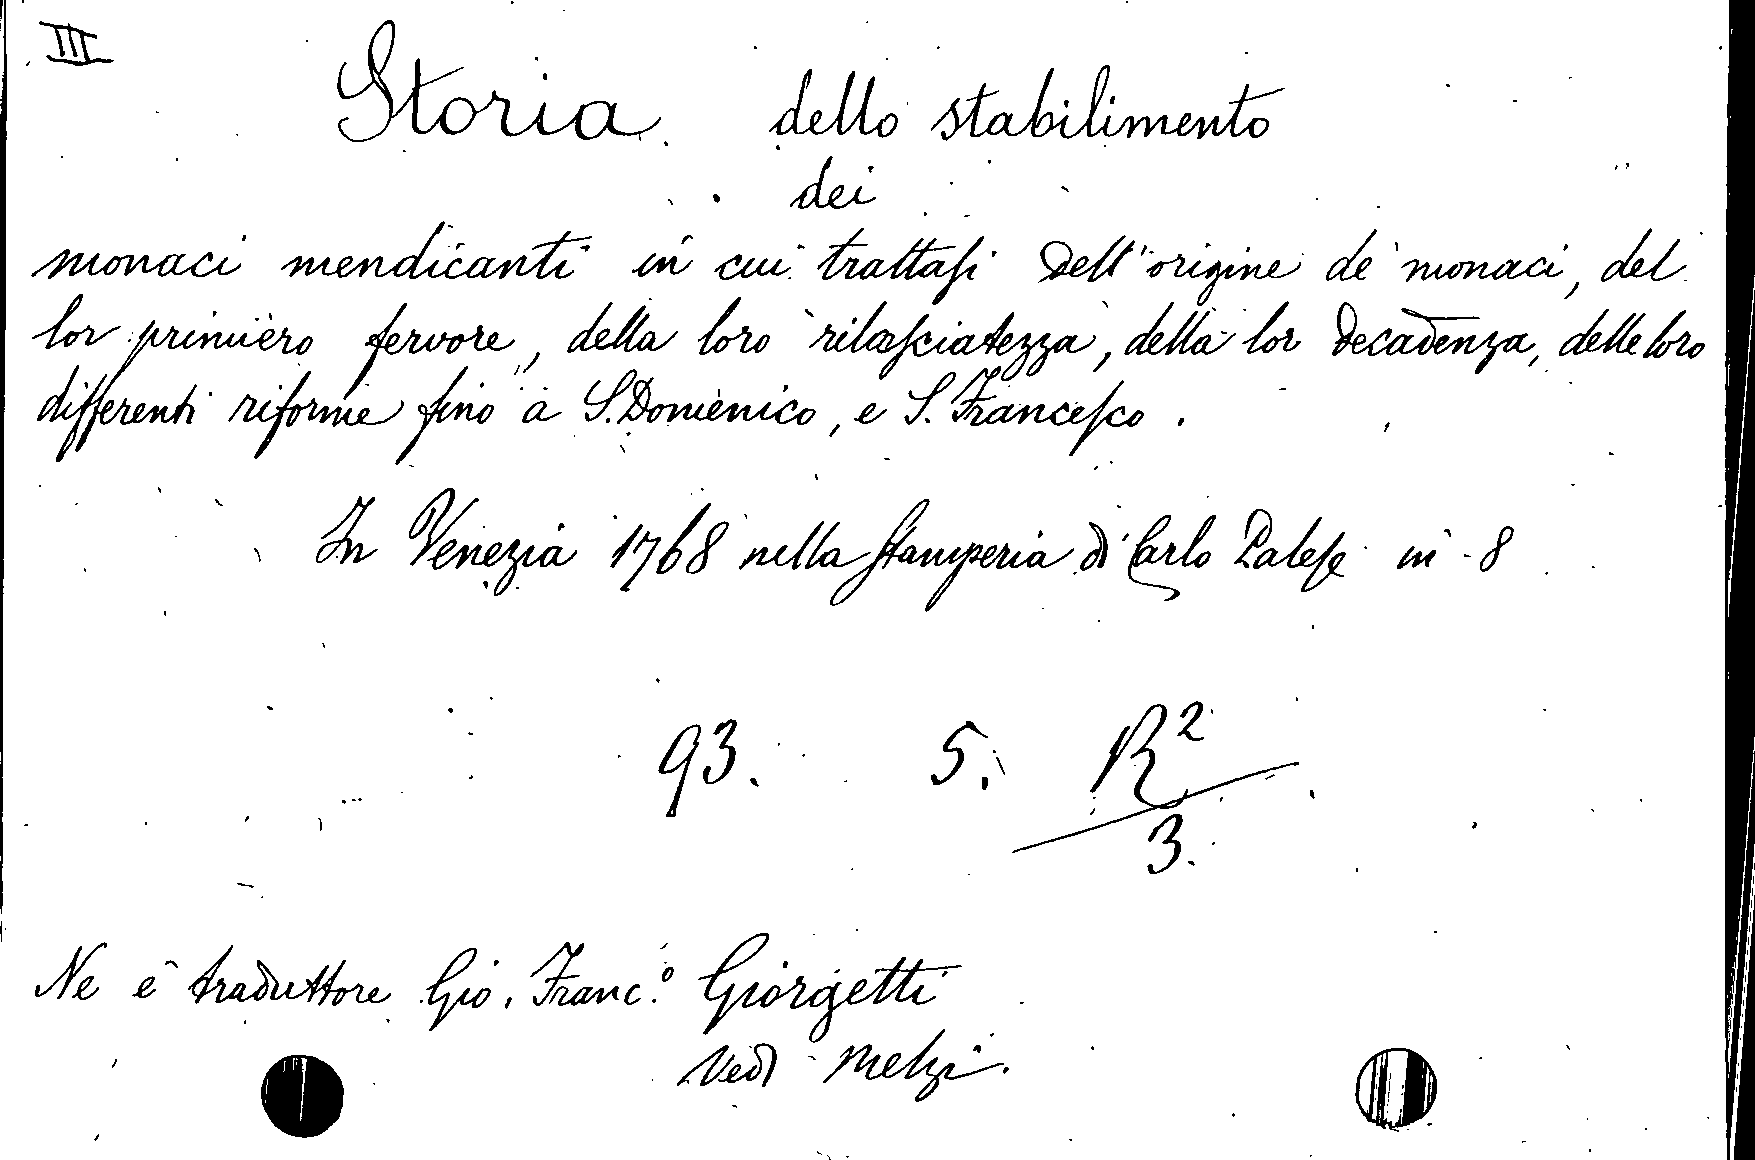 III
Storia dello stabilimento
dei
monaci mendicanti in cui trattasi dell'origine de' monaci, del
lor primiero fervore, della loro rilasciatezza, della lor decadenza, delle loro
differenti riforme fino a S. Domenico, e S. Francesco.
In Venezia 1768 nella Stamperia di Carlo Palese in 8
93. 5. R²
3.
Ne è traduttore Gio. Franc.º Giorgetti
Vedi Melzi.